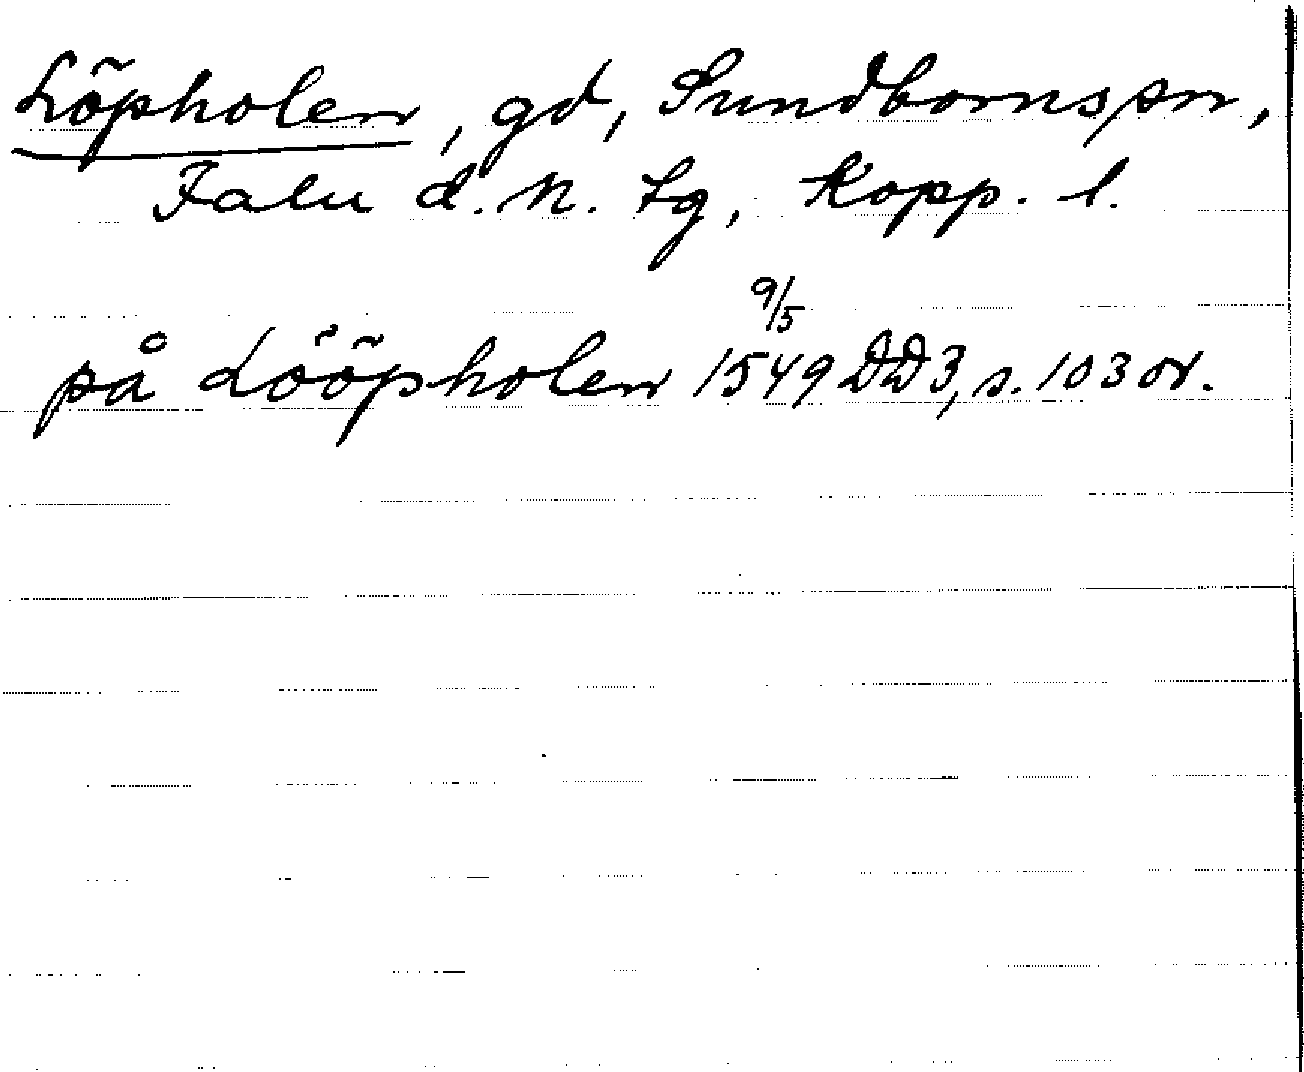 Löpholen, gd, Sundborns sn,
Falu d. N. tg, Kopp. l.
9/5
på Lööpholen 1549 DD3, s. 103 or.